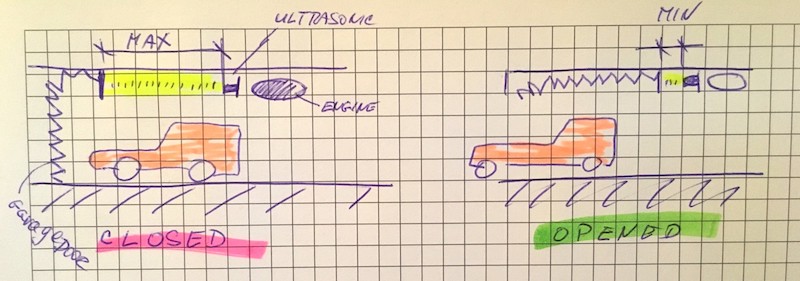 ULTRASONIC
MAX
ENGINE
Garagedoor
CLOSED
MIN
OPENED